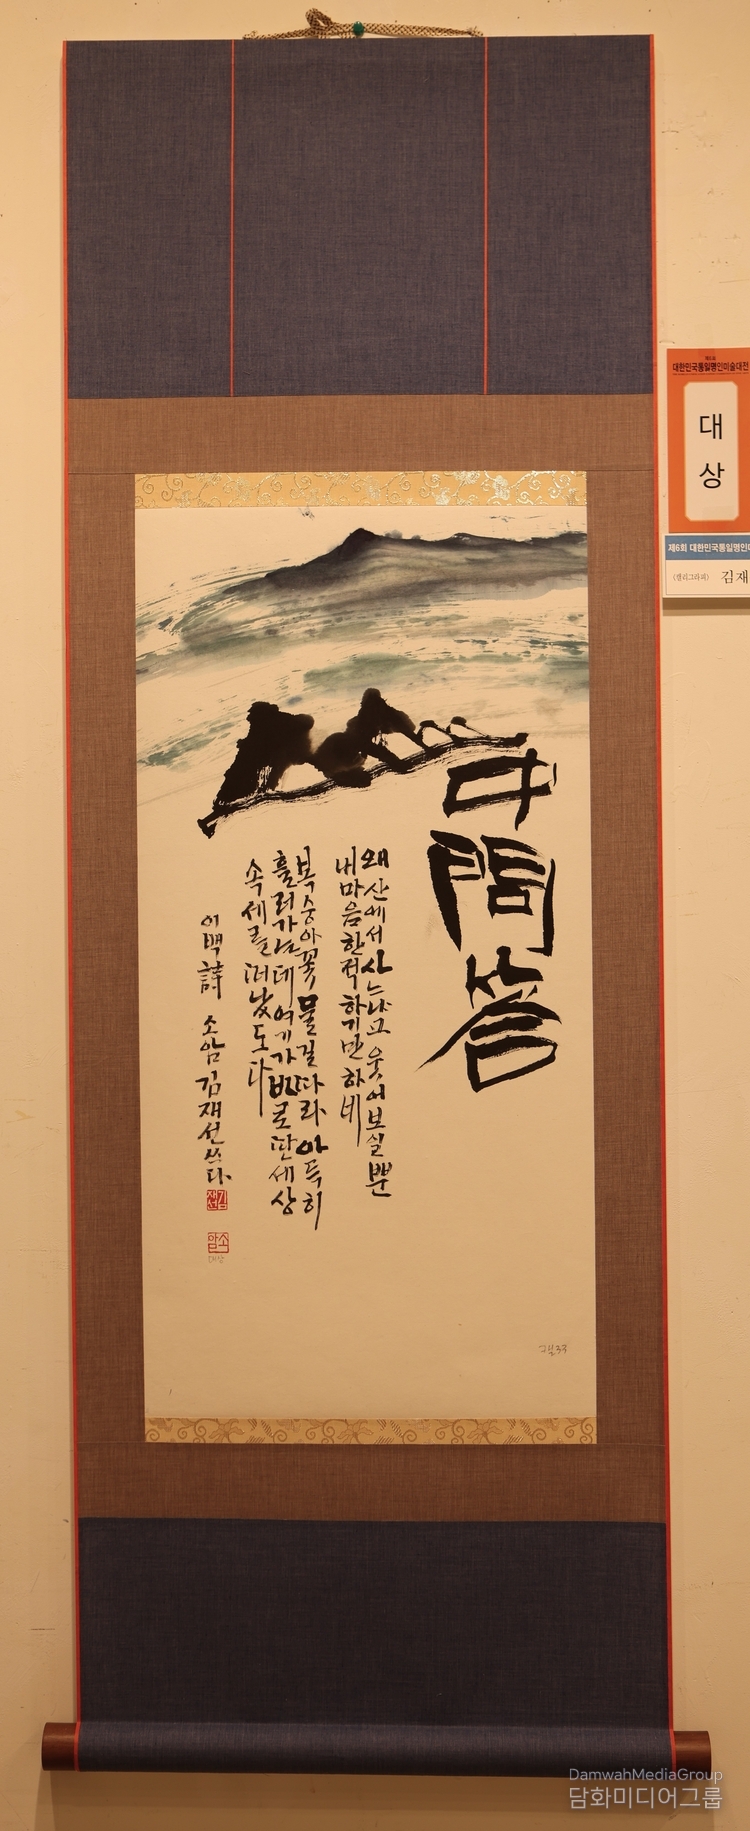 山中問答
왜 산에서 사느냐고 웃어보일 뿐
내 마음 한적하기만 하네
복숭아꽃 물길따라 아득히
흘러가는데 여기가 바로 딴 세상
속세를 떠났도다
이백 詩 소암 김재선 쓰다
김재선
소암
대상
제6회
대한민국통일명인미술대전
대상
제6회 대한민국통일명인미
(캘리그라피) 김재
DamwahMediaGroup
담화미디어그룹